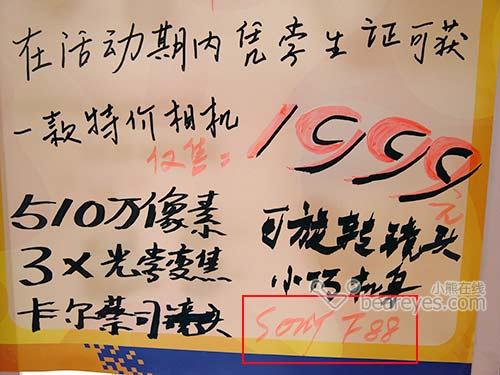 在活动期内凭学生证可获
一款特价相机
仅售：1999元
510万像素
3×光学变焦
卡尔蔡司镜头
可旋转镜头
小巧机身
Sony F88
小熊在线
beareyes.com